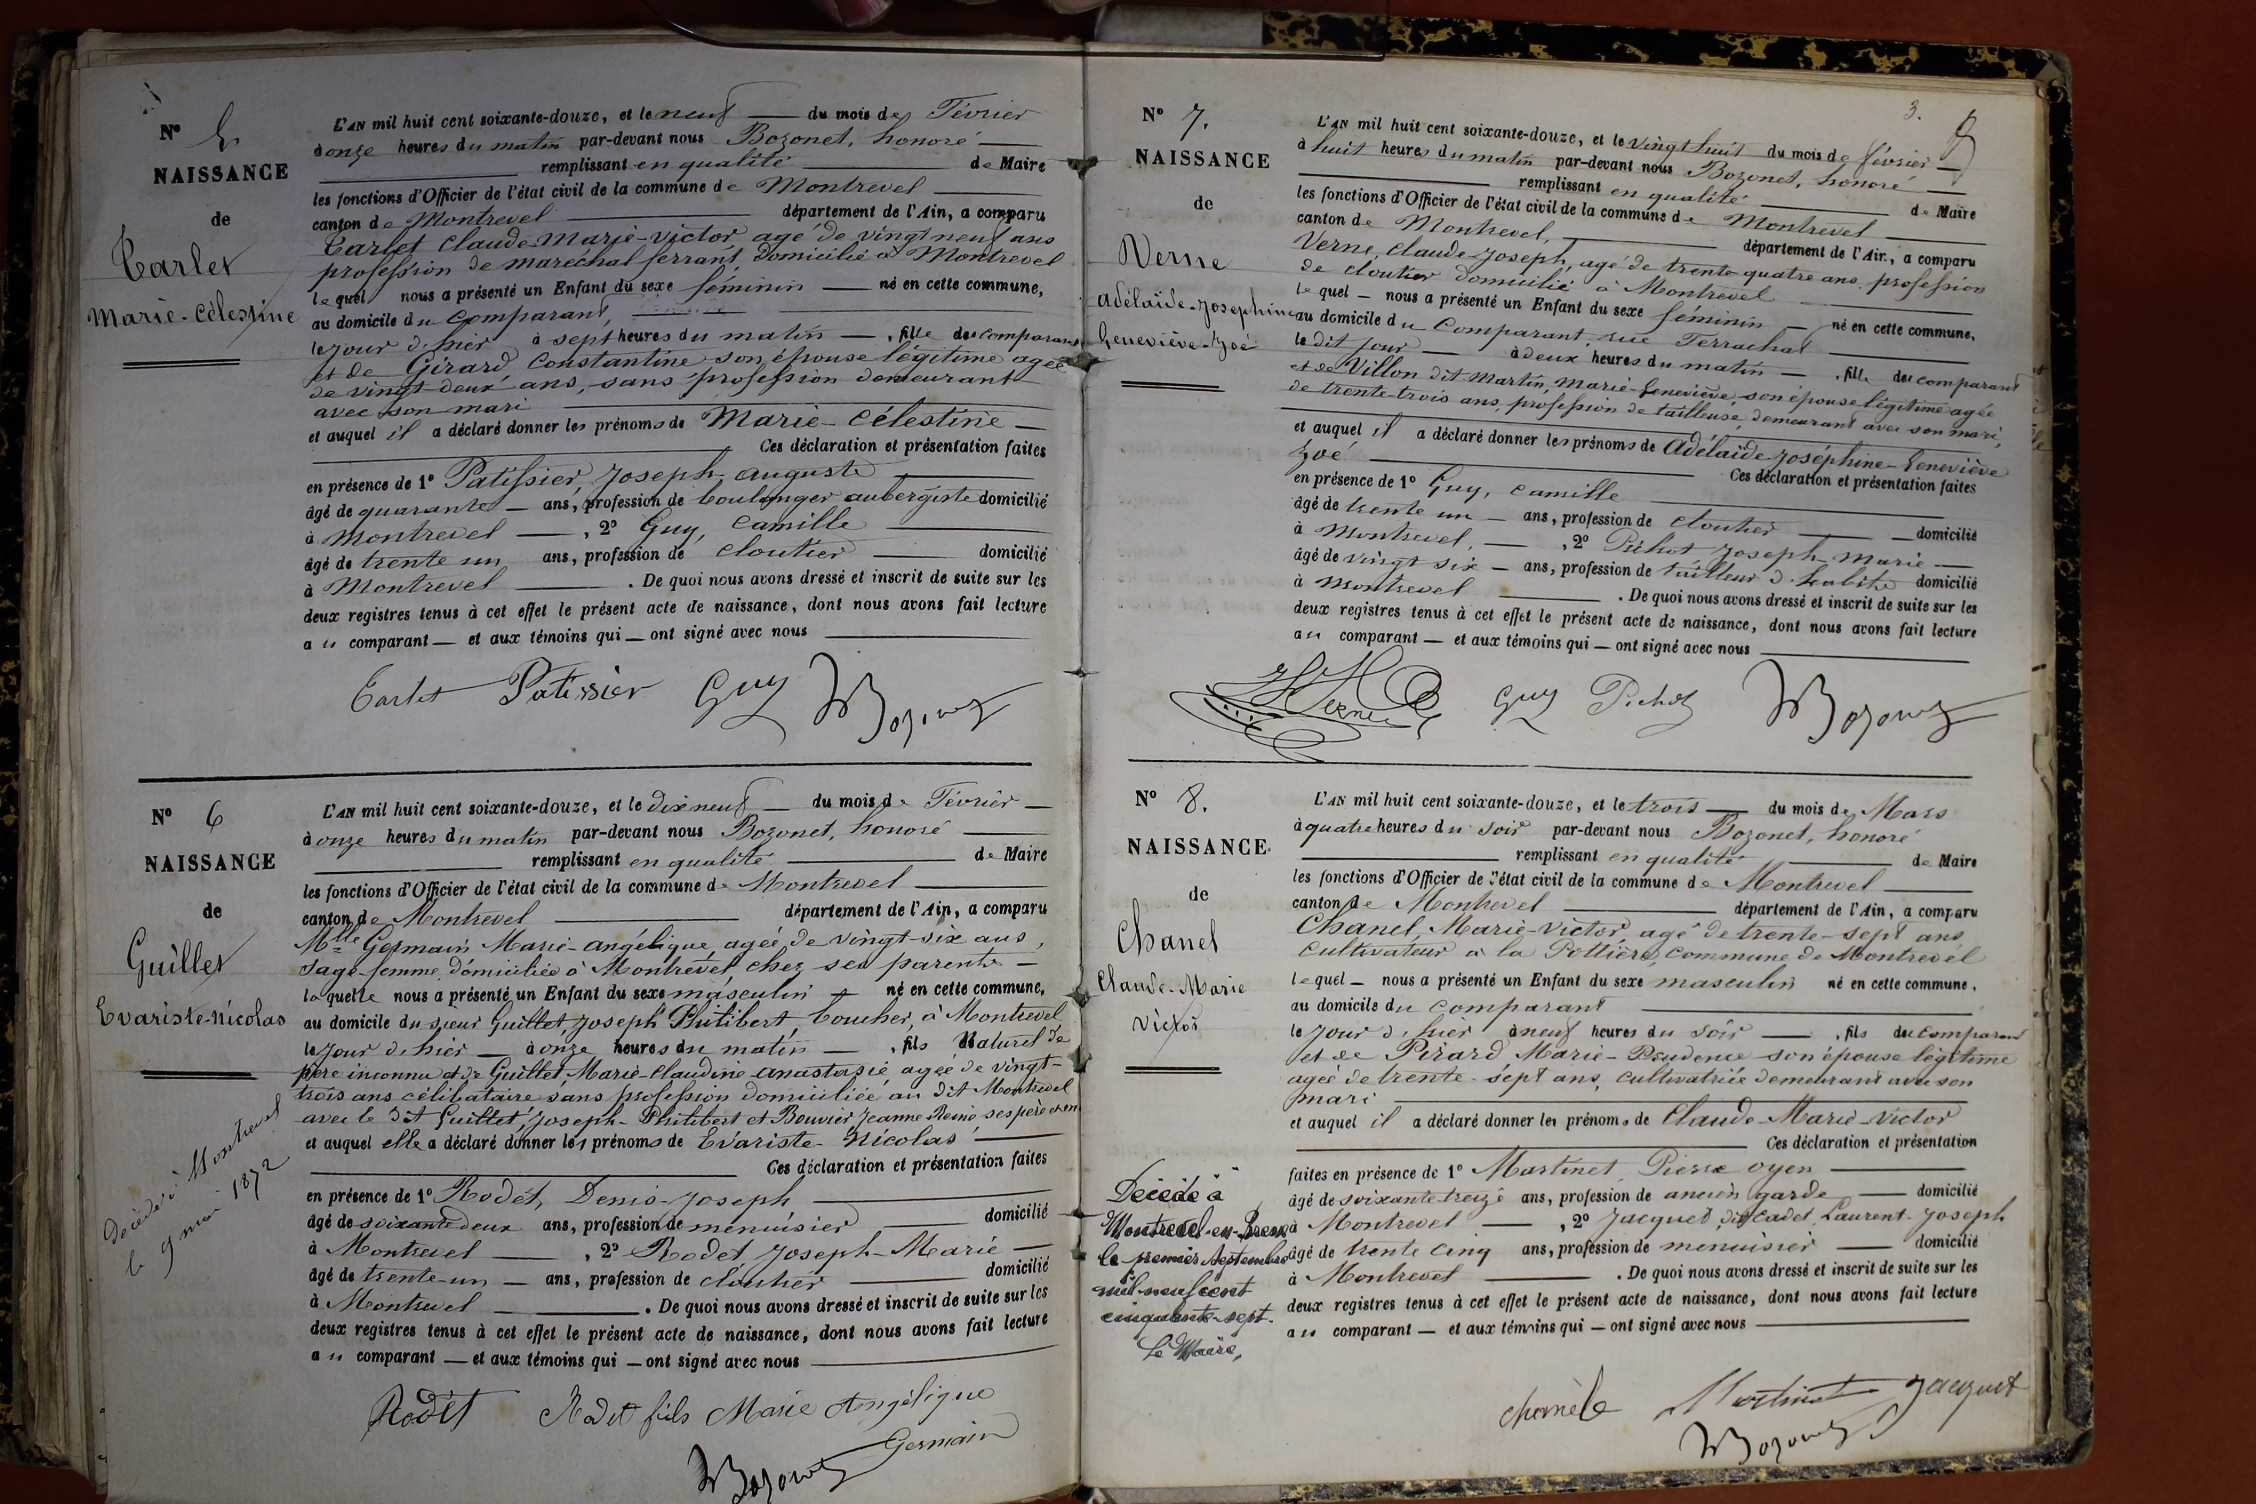 N° 5
NAISSANCE
de
Carlet
Marie-Célestine
L'AN mil huit cent soixante-douze, et le neuf du mois de Février
à onze heures du matin par-devant nous Bozonet, honoré
remplissant en qualité de Maire
les fonctions d'Officier de l'état civil de la commune de Montrevel
canton de Montrevel département de l'Ain, a comparu
Carlet Claude-Marie-Victor agé de vingt neuf ans
profession de maréchal ferrant, Domicilié à Montrevel
lequel nous a présenté un Enfant du sexe féminin né en cette commune,
au domicile du Comparant,
le jour d'hier à sept heures du matin, fille du comparant
et de Girard Constantine son épouse légitime agée
de vingt deux ans, sans profession demeurant
avec son mari
et auquel il a déclaré donner les prénoms de Marie-Célestine
Ces déclaration et présentation faites
en présence de 1° Patissier, Joseph-auguste
âgé de quarante ans, profession de boulanger aubergiste domicilié
à Montrevel, 2° Guy, Camille
âgé de trente un ans, profession de cloutier domicilié
à Montrevel. De quoi nous avons dressé et inscrit de suite sur les
deux registres tenus à cet effet le présent acte de naissance, dont nous avons fait lecture
au comparant et aux témoins qui ont signé avec nous
Carlet Patissier Guy Bozonet
N° 6
NAISSANCE
de
Guillet
Evariste-Nicolas
Décédé à Montrevel
le 9 mai 1872
L'AN mil huit cent soixante-douze, et le dix neuf du mois de Février
à onze heures du matin par-devant nous Bozonet, honoré
remplissant en qualité de Maire
les fonctions d'Officier de l'état civil de la commune de Montrevel
canton de Montrevel département de l'Ain, a comparu
Mlle Germain Marie-angélique, agée de vingt-six ans,
sage-femme, domiciliée à Montrevel, chez ses parents
laquelle nous a présenté un Enfant du sexe masculin né en cette commune,
au domicile du sieur Guillet, Joseph Philibert, boucher, à Montrevel
le jour d'hier à onze heures du matin, fils Naturel de
père inconnu et de Guillet, Marie-Claudine anastasie, agée de vingt-
trois ans célibataire sans profession domiciliée au dit Montrevel
avec le dit Guillet, Joseph-Philibert et Bouvier Jeanne Reine, ses père et m
et auquel elle a déclaré donner les prénoms de Evariste-Nicolas
Ces déclaration et présentation faites
en présence de 1° Rodet, Denis-Joseph
âgé de soixante deux ans, profession de menuisier domicilié
à Montrevel, 2° Rodet Joseph-Marie
âgé de trente-un ans, profession de cloutier domicilié
à Montrevel. De quoi nous avons dressé et inscrit de suite sur les
deux registres tenus à cet effet le présent acte de naissance, dont nous avons fait lecture
au comparant et aux témoins qui ont signé avec nous
Rodet Rodet fils Marie Angélique
Germain
Bozonet
3.
N° 7.
NAISSANCE
de
Verne
Adélaïde-Josephine
Geneviève-Zoé
L'AN mil huit cent soixante-douze, et le vingt huit du mois de février
à huit heures du matin par-devant nous Bozonet, honoré
remplissant en qualité de Maire
les fonctions d'Officier de l'état civil de la commune de Montrevel
canton de Montrevel, département de l'Ain, a comparu
Verne, Claude-Joseph, agé de trente quatre ans, profession
de cloutier domicilié à Montrevel
lequel nous a présenté un Enfant du sexe féminin né en cette commune,
au domicile du Comparant, rue Ferrachat
le dit jour à deux heures du matin, fille du comparant
et de Villon dit Martin, Marie-Geneviève, son épouse légitime agée
de trente-trois ans, profession de tailleuse, demeurant avec son mari,
et auquel il a déclaré donner les prénoms de Adélaïde-Joséphine-Geneviève
Zoé
Ces déclaration et présentation faites
en présence de 1° Guy, Camille
âgé de trente un ans, profession de cloutier domicilié
à Montrevel, 2° Pichot Joseph Marie
âgé de vingt six ans, profession de tailleur d'habits domicilié
à Montrevel. De quoi nous avons dressé et inscrit de suite sur les
deux registres tenus à cet effet le présent acte de naissance, dont nous avons fait lecture
au comparant et aux témoins qui ont signé avec nous
Verne Guy Pichot Bozonet
N° 8.
NAISSANCE.
de
Chanel
Claude-Marie
Victor
Décédé à
Montrevel-en-Bresse
le premier septembre
mil-neuf cent
cinquante-sept.
Le Maire,
L'AN mil huit cent soixante-douze, et le trois du mois de Mars
à quatre heures du soir par-devant nous Bozonet, honoré
remplissant en qualité de Maire
les fonctions d'Officier de l'état civil de la commune de Montrevel
canton de Montrevel département de l'Ain, a comparu
Chanel, Marie-Victor agé de trente-sept ans
cultivateur à la Pottière, commune de Montrevel
lequel nous a présenté un Enfant du sexe masculin né en cette commune,
au domicile du comparant
le jour d'hier à neuf heures du soir, fils du comparant
et de Pirard Marie-Prudence son épouse légitime
agée de trente-sept ans, cultivatrice demeurant avec son
mari
et auquel il a déclaré donner les prénoms de Claude-Marie-Victor
Ces déclaration et présentation
faites en présence de 1° Martinet, Pierre oyen
âgé de soixante treize ans, profession de ancien garde domicilié
à Montrevel, 2° Jacquet dit Cadet, Laurent-Joseph
âgé de trente cinq ans, profession de menuisier domicilié
à Montrevel. De quoi nous avons dressé et inscrit de suite sur les
deux registres tenus à cet effet le présent acte de naissance, dont nous avons fait lecture
au comparant et aux témoins qui ont signé avec nous
Martinet Jacquet
Bozonet